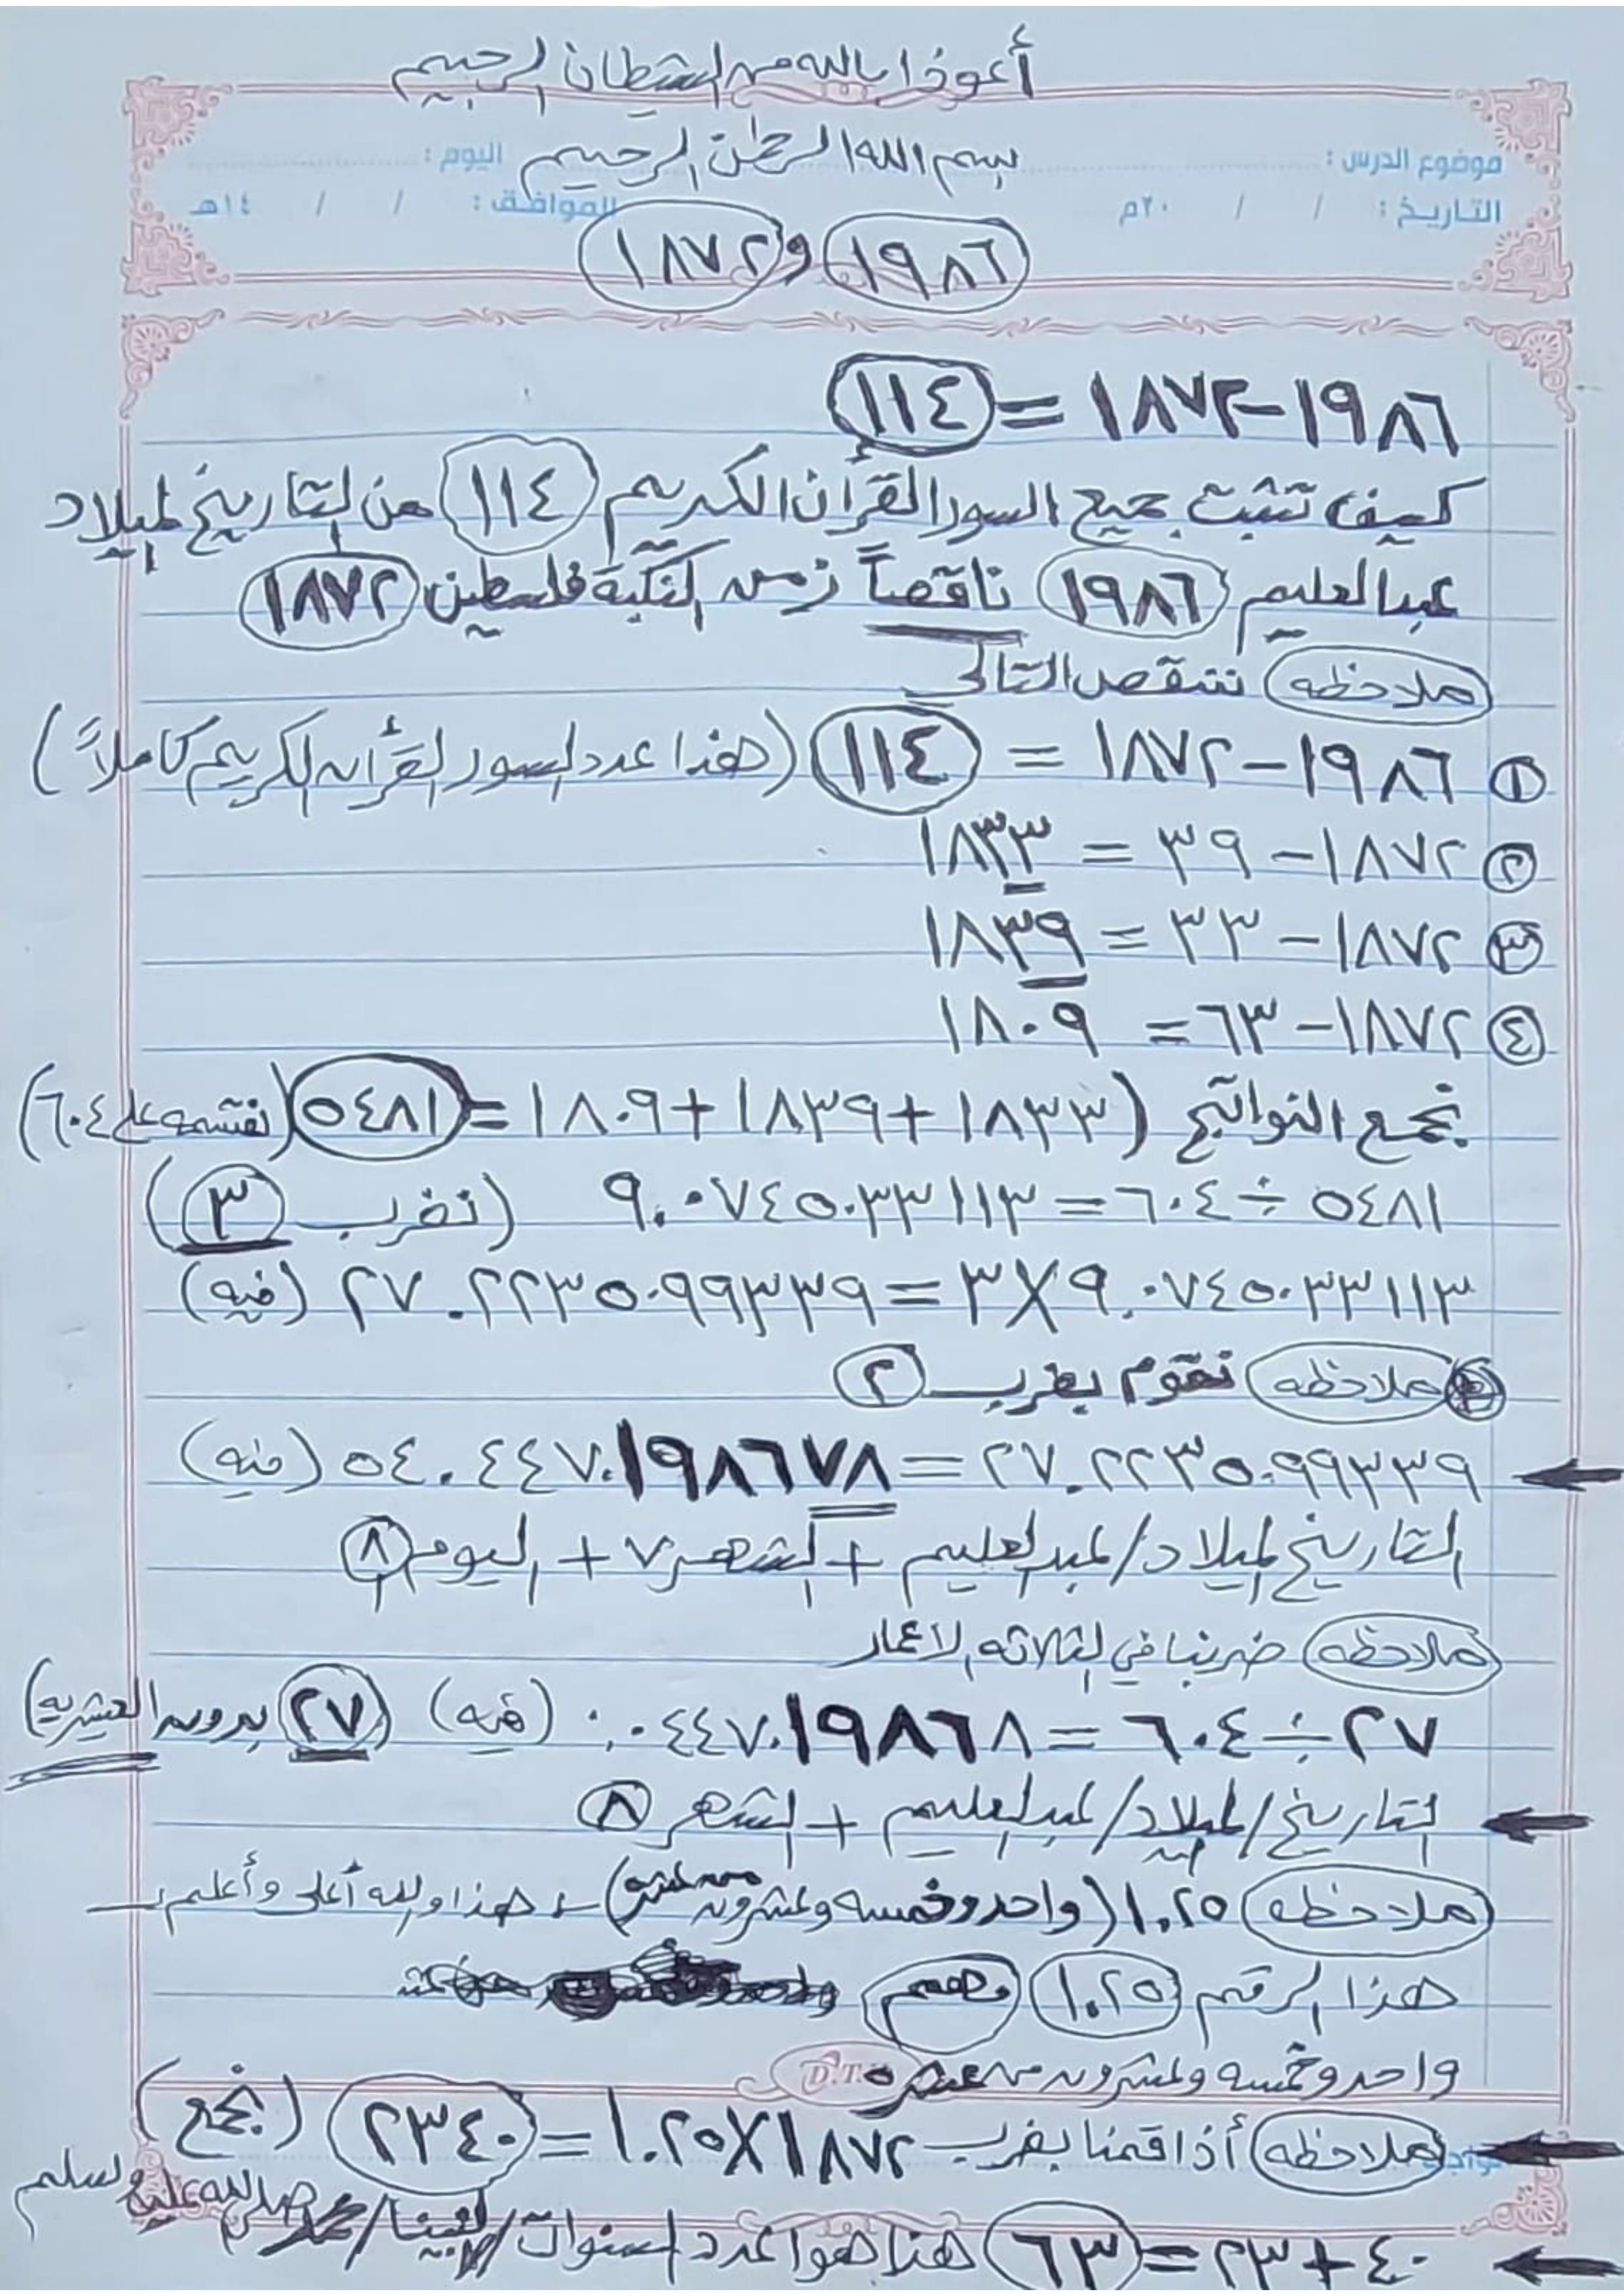 أعوذ بالله من الشطان الرجيم
بسم الله الرحمن الرحيم
موضوع الدرس : اليوم :
التاريخ : / / ٢٠م الموافق : / / ١٤هـ
١٩٨٦ و ١٨٧٢
١٩٨٦ - ١٨٧٢ = ١١٤
كيف تثبت جميع السور القرأن الكريم ١١٤ من التاريخ لميلاد
عبدالعليم ١٩٨٦ ناقصاً زمن النكبة فلسطين ١٨٧٢
ملاحظه ننقص التالي
١ ١٩٨٦ - ١٨٧٢ = ١١٤ (هذا عدد السور القرأن الكريم كاملاً)
٢ ١٨٧٢ - ٣٩ = ١٨٣٣
٣ ١٨٧٢ - ٣٣ = ١٨٣٩
٤ ١٨٧٢ - ٦٣ = ١٨٠٩
نجمع النواتج (١٨٣٣ + ١٨٣٩ + ١٨٠٩ = ٥٤٨١ (نقسمه على ٦٠٤)
٥٤٨١ ÷ ٦٠٤ = ٩.٠٧٤٥٠٣٣١١٣ (نضرب ٣)
٩.٠٧٤٥٠٣٣١١٣ × ٣ = ٢٧.٢٢٣٥٠٩٩٣٣٩ (فيه)
ملاحظه نقوم بضرب ٢
٢٧.٢٢٣٥٠٩٩٣٣٩ = ٥٤.٤٤٧٠١٩٨٦٧٨ (فيه)
التاريخ لميلاد/عبدالعليم + الشهر ٧ + اليوم ٨
ملاحظه ضربنا في الثلاثه الاعمار
٢٧ ÷ ٦٠٤ = ٠.٠٤٤٧٠١٩٨٦٨ (فيه) (٢٧ بدون العشريه)
التاريخ/لميلاد/عبدالعليم + الشهر ٨
ملاحظه ١.٢٥ (واحد وخمسه وعشرون من عشره) هذا والله أعلى وأعلم
هذا الرقم ١.٢٥ مهم
واحد وخمسه وعشرون من عشره
D.T.
ملاحظه أذا قمنا بضرب ١٨٧٢ × ١.٢٥ = ٢٣٤٠ (نجمع)
٤٠ + ٢٣ = ٦٣ هذا هوا عدد سنوات/نبينا/محمد صلى الله عليه وسلم